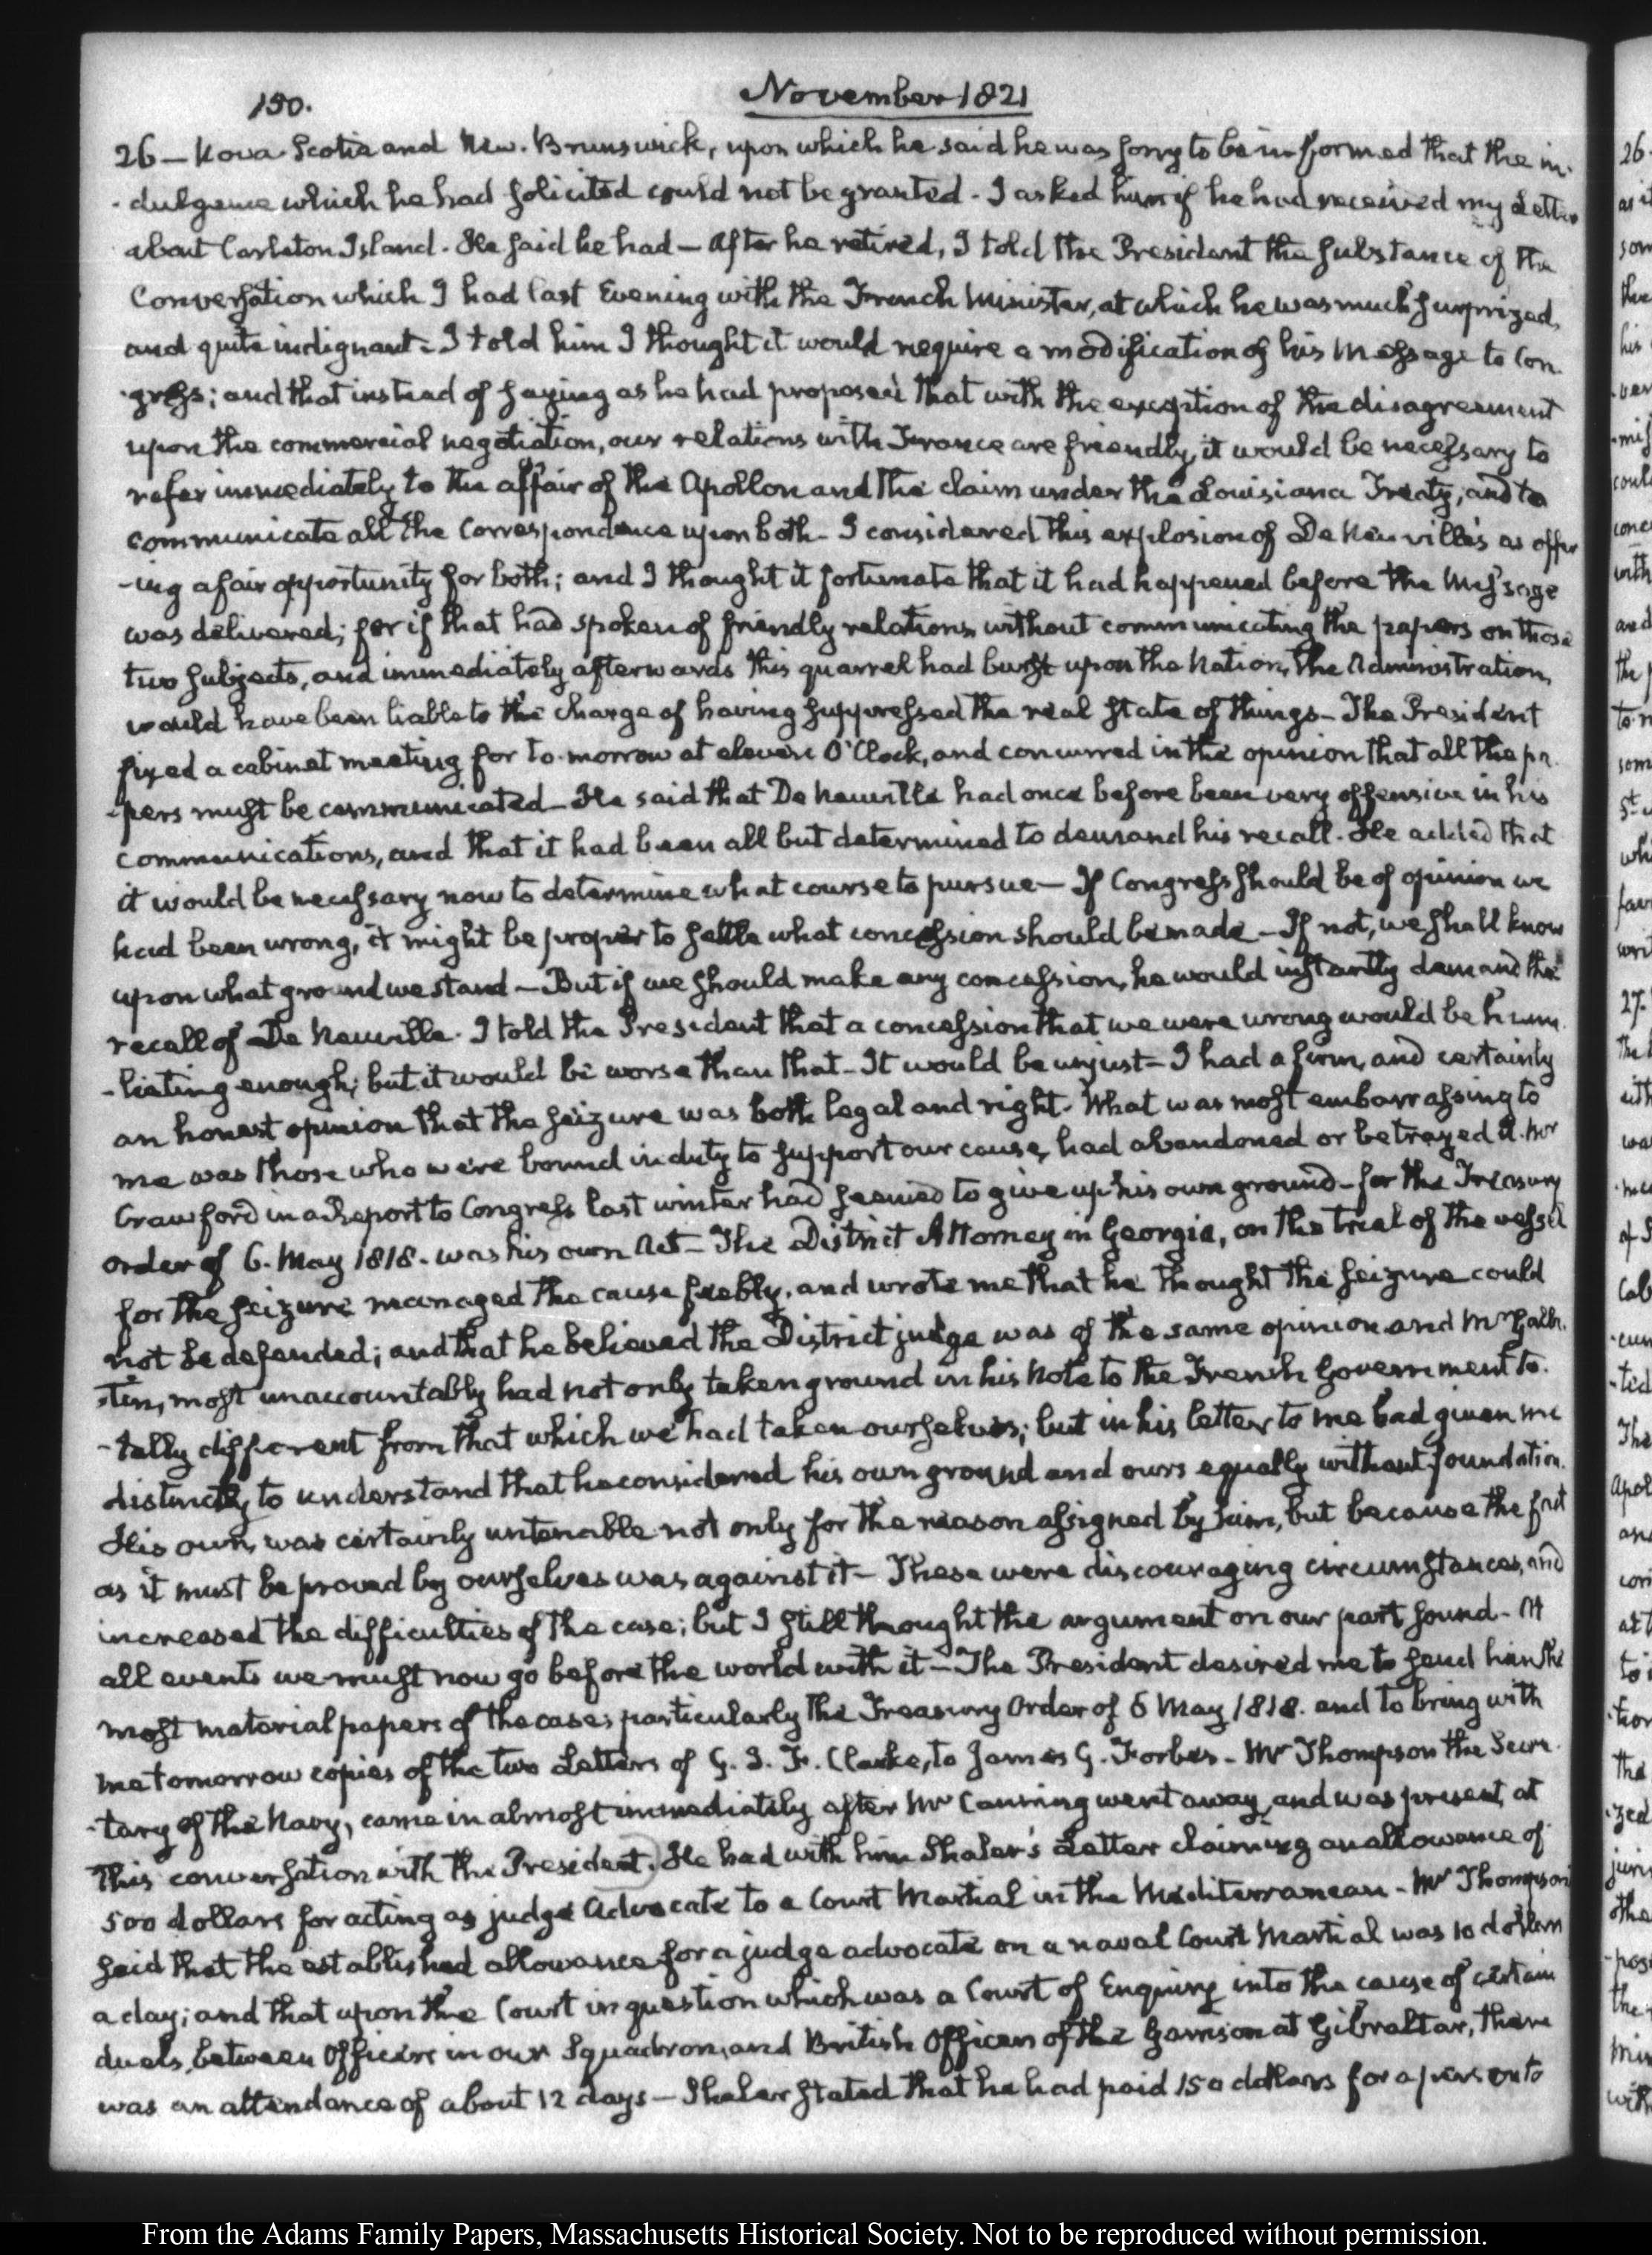 190.
November 1821
26 — Nova Scotia and New-Brunswick, upon which he said he was sorry to be informed that the in-
-dulgence which he had solicited could not be granted. I asked him if he had received my Letter
about Carleton Island. He said he had — After he retired, I told the President the substance of the
Conversation which I had last Evening with the French Minister, at which he was much surprized,
and quite indignant. I told him I thought it would require a modification of his Message to Con-
-gress; and that instead of saying as he had proposed that with the exception of the disagreement
upon the commercial negotiation, our relations with France are friendly, it would be necessary to
refer immediately to the affair of the Apollon and the claim under the Louisiana Treaty, and to
communicate all the Correspondence upon both. I considered this explosion of De Neuville's as offer
-ing a fair opportunity for both; and I thought it fortunate that it had happened before the Message
was delivered; for if that had spoken of friendly relations without communicating the papers on those
two subjects, and immediately afterwards this quarrel had burst upon the Nation, the Administration,
would have been liable to the charge of having suppressed the real state of things — The President
fixed a cabinet meeting for to-morrow at eleven O'Clock, and concurred in the opinion that all the pa-
-pers must be communicated — He said that De Neuville had once before been very offensive in his
communications, and that it had been all but determined to demand his recall. He added that
it would be necessary now to determine what course to pursue — If Congress should be of opinion we
had been wrong, it might be proper to settle what concession should be made — If not, we shall know
upon what ground we stand — But if we should make any concession, he would instantly demand the
recall of De Neuville. I told the President that a concession that we were wrong would be humi
-liating enough; but it would be worse than that — It would be unjust — I had a firm, and certainly
an honest opinion that the seizure was both legal and right. What was most embarrassing to
me was those who were bound in duty to support our cause, had abandoned or betrayed it. Mr
Crawford in a Report to Congress last winter had seemed to give up his own ground — for the Treasury
order of 6. May 1818. was his own Act — The District Attorney in Georgia, on the trial of the vessel
for the seizure managed the cause feebly, and wrote me that he thought the seizure could
not be defended; and that he believed the District judge was of the same opinion and Mr Galla-
-tin, most unaccountably had not only taken ground in his Note to the French Government to-
-tally different from that which we had taken ourselves; but in his letter to me had given me
distinctly to understand that he considered his own ground and ours equally without foundation.
His own, was certainly untenable not only for the reason assigned by him, but because the fact
as it must be proved by ourselves was against it — These were discouraging circumstances, and
increased the difficulties of the case; but I still thought the argument on our part sound. At
all events we must now go before the world with it — The President desired me to send him the
most material papers of the case; particularly the Treasury Order of 6 May 1818. and to bring with
me tomorrow copies of the two Letters of G. I. F. Clarke, to James G. Forbes — Mr Thompson the Secre-
-tary of the Navy, came in almost immediately after Mr Canning went away, and was present at
this conversation with the President. He had with him Shaler's Letter claiming an allowance of
500 dollars for acting as judge Advocate to a Court Martial in the Mediterranean — Mr Thompson
said that the established allowance for a judge advocate on a naval Court Martial was 10 dollars
a day; and that upon the Court in question which was a Court of Enquiry into the cause of certain
duels, between Officers in our Squadron, and British Officers of the Garrison at Gibraltar, there
was an attendance of about 12 days — Shaler stated that he had paid 150 dollars for a person to
From the Adams Family Papers, Massachusetts Historical Society. Not to be reproduced without permission.